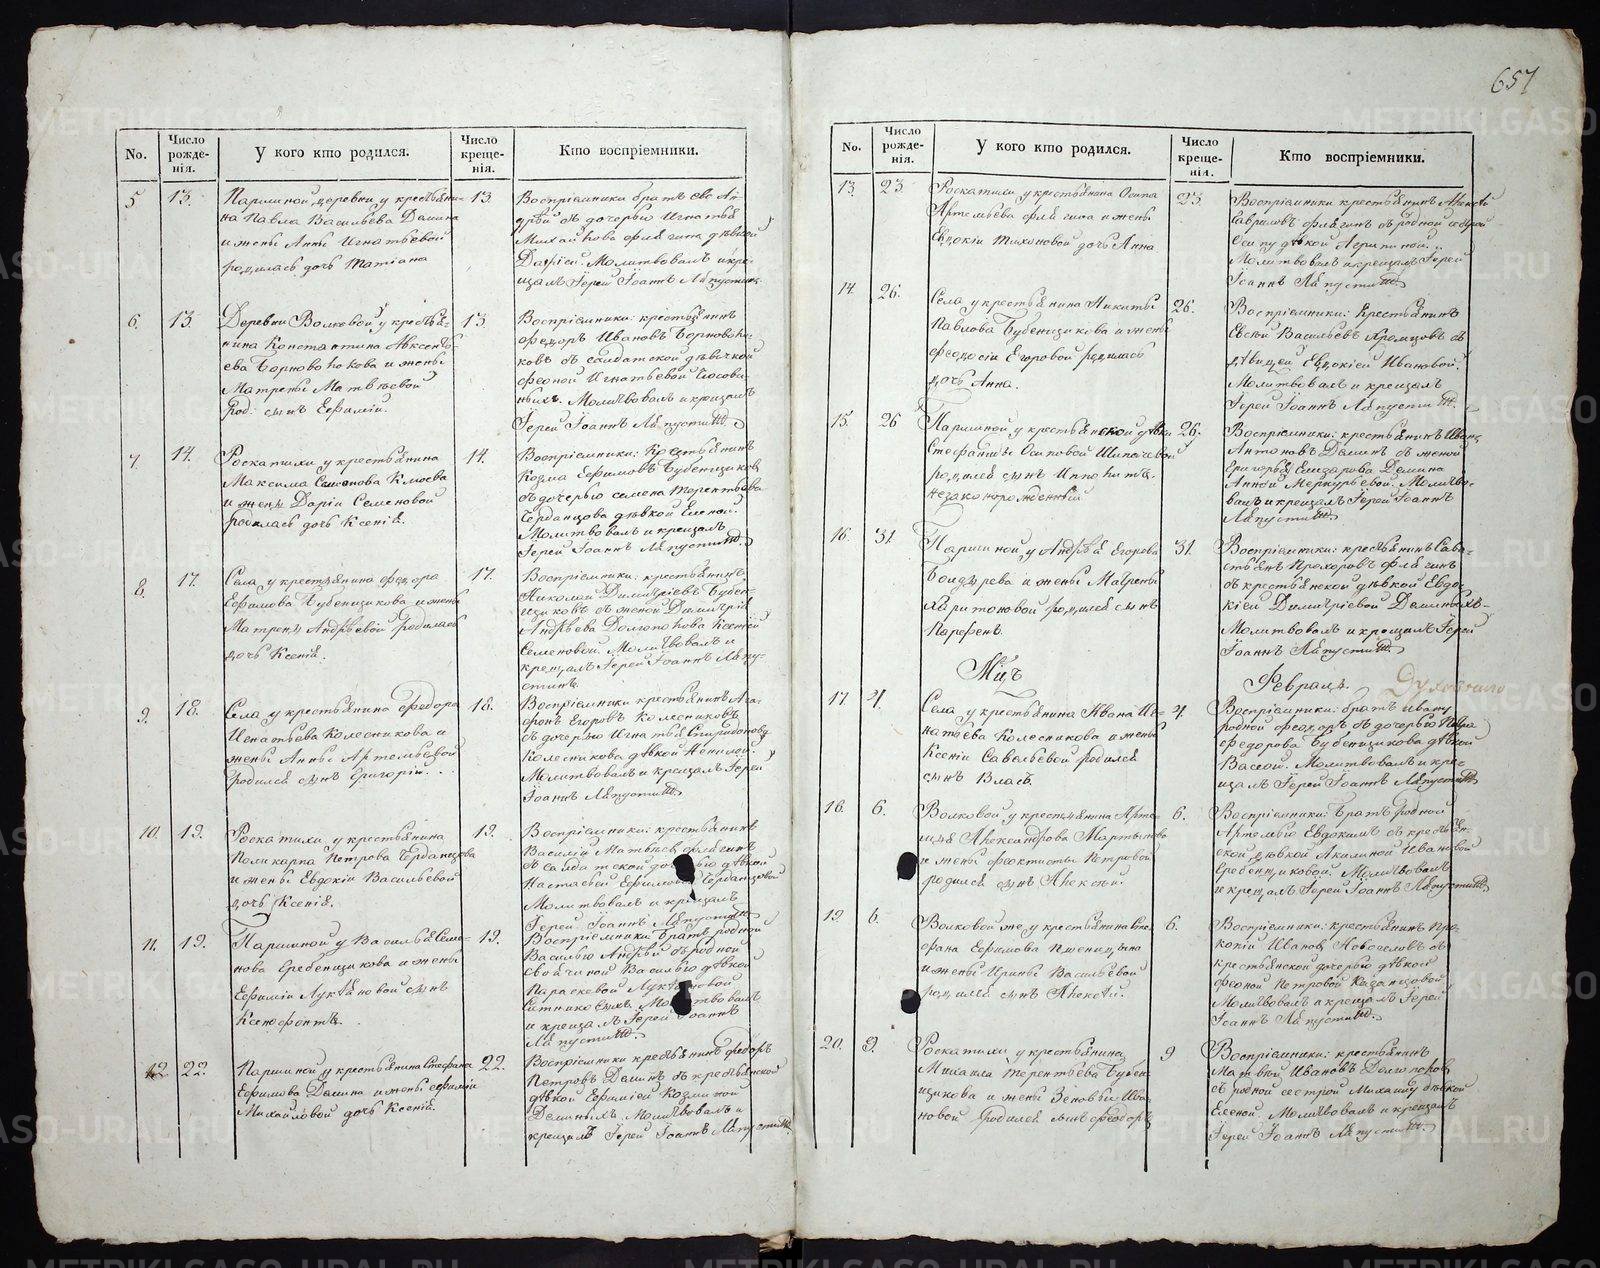 657
No.
Число рожде-нія.
У кого кто родился.
Число креще-нія.
Кто воспріемники.
5
13.
Паршиной деревни у крестьяни-
на Павла Васильева Демина
и жены Анны Игнатьевой
родилась дочь Татіана
13.
Воспріемники братъ его Ан-
дрей съ дочерью Игнатья
Михайлова Флягина девкой
Даріей. Молитвовалъ и кре-
щалъ Іерей Іоаннъ Ляпустинъ
6.
13.
Деревни Волковой у крестья-
нина Константина Авксенть-
ева Борноволокова и жены
Матрены Матвѣевой
род: сынъ Ефимій.
13.
Воспріемники: крестьянинъ
Федоръ Ивановъ Борноволо-
ковъ съ салдатской дѣвочкой
Феоной Игнатьевой
Молитвовалъ и крещалъ
Іерей Іоаннъ Ляпустинъ
7.
14.
Роскатихи у крестьянина
Максима Семенова Клюева
и жены Даріи Семеновой
родилась дочь Ксенія.
14.
Воспріемники: Крестьянинъ
Козма Ефимовъ Бубенщиковъ
съ дочерью Семена Терентьева
Черданцова дѣвкой Еленой.
Молитвовалъ и крещалъ
Іерей Іоаннъ Ляпустинъ
8.
17.
Села у крестьянина Федора
Ефимова Бубенщикова и жены
Матрены Андреевой родилась
дочь Ксенія.
17.
Воспріемники: крестьянинъ
Николай Димитріевъ Бубен-
щиковъ съ женой Димитрія
Андреева Долгополова Ксенией
Семеновой. Молитвовалъ и
крещалъ Іерей Іоаннъ Ляпу-
стинъ.
9.
18.
Села у крестьянина Федора
Игнатьева Колесникова и
жены Анны Артемьевой
родился сынъ Григорій...
18.
Воспріемники крестьянинъ Ага-
фонъ Егоровъ Колесниковъ
съ дочерью Игнатья Спиридонова
Колесникова дѣвкой Ненилой
Молитвовалъ и крещалъ Іерей
Іоаннъ Ляпустинъ
10.
19.
Роскатихи у крестьянина
Поликарпа Петрова Черданцова
и жены Евдокіи Васильевой
дочь Ксенія.
19.
Воспріемники: крестьянинъ
Василій Матвеевъ Флягинъ
съ салдатской дочерью дѣвкой
Настасьей Ефимовой Черданцовой
Молитвовалъ и крещалъ
Іерей Іоаннъ Ляпустинъ
11.
19.
Паршиной у Василья Семе-
нова Гребенщикова и жены
Ефиміи Лукьяновой сынъ
Ксенофонтъ.
19.
Воспріемники братъ родной
Василью Андрей съ родной
Василью дѣвкой
Парасковой Лукьяновой
Молитвовалъ
и крещалъ Іерей Іоаннъ
Ляпустинъ
12
22.
Паршиной у крестьянина Стефана
Ефимова Демина и жены Ефиміи
Михайловой дочь Ксенія.
22.
Воспріемники крестьянинъ Федоръ
Петровъ Деминъ съ крестьянской
дѣвкой Ефиміей Козминой
Деминыхъ. Молитвовалъ и
крещалъ Іерей Іоаннъ Ляпустинъ
No.
Число рожде-нія.
У кого кто родился.
Число креще-нія.
Кто воспріемники.
13.
23.
Роскатихи у крестьянина Осипа
Артемьева Флягина и жены
Евдокіи Тихоновой дочь Анна
23.
Воспріемники крестьянинъ Алексей
Гавриловъ Флягинъ съ родной сестрой
Осипу дѣвкой Агрипиной.
Молитвовалъ и крещалъ Іерей
Іоаннъ Ляпустинъ
14.
26.
Села у крестьянина Никиты
Павлова Бубенщикова и жены
Феодосіи Егоровой родилась
дочь Анна.
26.
Воспріемники: Крестьянинъ
Евсей Васильевъ Храмцовъ съ
дѣвицей Евдокіей Ивановой.
Молитвовалъ и крещалъ
Іерей Іоаннъ Ляпустинъ
15.
26
Паршиной у крестьянской дѣвки
Стефаниды Осиповой
родился сынъ Ипполитъ.
незаконорожденный
26.
Воспріемники: крестьянинъ Иванъ
Антоновъ Деминъ съ женой
Григорья Елизарова Демина
Анной Меркурьевой. Молитво-
валъ и крещалъ Іерей Іоаннъ
Ляпустинъ
16.
31.
Паршиной у Андрея Егорова
Болдырева и жены Матрены
Харитоновой родился сынъ
Парфенъ.
31.
Воспріемники: крестьянинъ Сава-
стьянъ Прохоровъ Флягинъ
съ крестьянской дѣвкой Евдо-
кіей Димитріевой Деминыхъ.
Молитвовалъ и крещалъ Іерей
Іоаннъ Ляпустинъ
Мцъ
Февраль.
17.
4.
Села у крестьянина Ивана Иг-
натьева Колесникова и жены
Ксеніи Савельевой родился
сынъ Власъ.
4.
Воспріемники: братъ Ивану
родной Федоръ съ дочерью Петра
Федорова Бубенщикова дѣвкой
Вассой. Молитвовалъ и кре-
щалъ Іерей Іоаннъ Ляпустинъ
18.
6.
Волковой у крестьянина Арте-
мья Александрова Мартынова
и жены Фектисты Петровой
родился сынъ Алексей.
6.
Воспріемники: братъ родной
Артемью Евдокимъ съ крестьян-
ской дѣвкой Акилиной Ивановой
Гребенщиковой. Молитвовалъ
и крещалъ Іерей Іоаннъ Ляпустинъ
19
6.
Волковой же у крестьянина Сте-
фана Ефимова Пшеницына
и жены Ирины Васильевой
родился сынъ Алексей.
6.
Воспріемники: крестьянинъ Про-
копій Ивановъ съ
крестьянской дочерью дѣвкой
Феоной Петровой Казанцовой
Молитвовалъ и крещалъ Іерей
Іоаннъ Ляпустинъ
20.
9.
Роскатихи у крестьянина
Михаила Терентьева Бубен-
щикова и жены Зеновьи Ива-
новой родился сынъ Феодоръ
9
Воспріемники: крестьянинъ
Матвей Ивановъ Долгополовъ
съ родной сестрой Михаилу дѣвкой
Еленой. Молитвовалъ и крещалъ
Іерей Іоаннъ Ляпустинъ